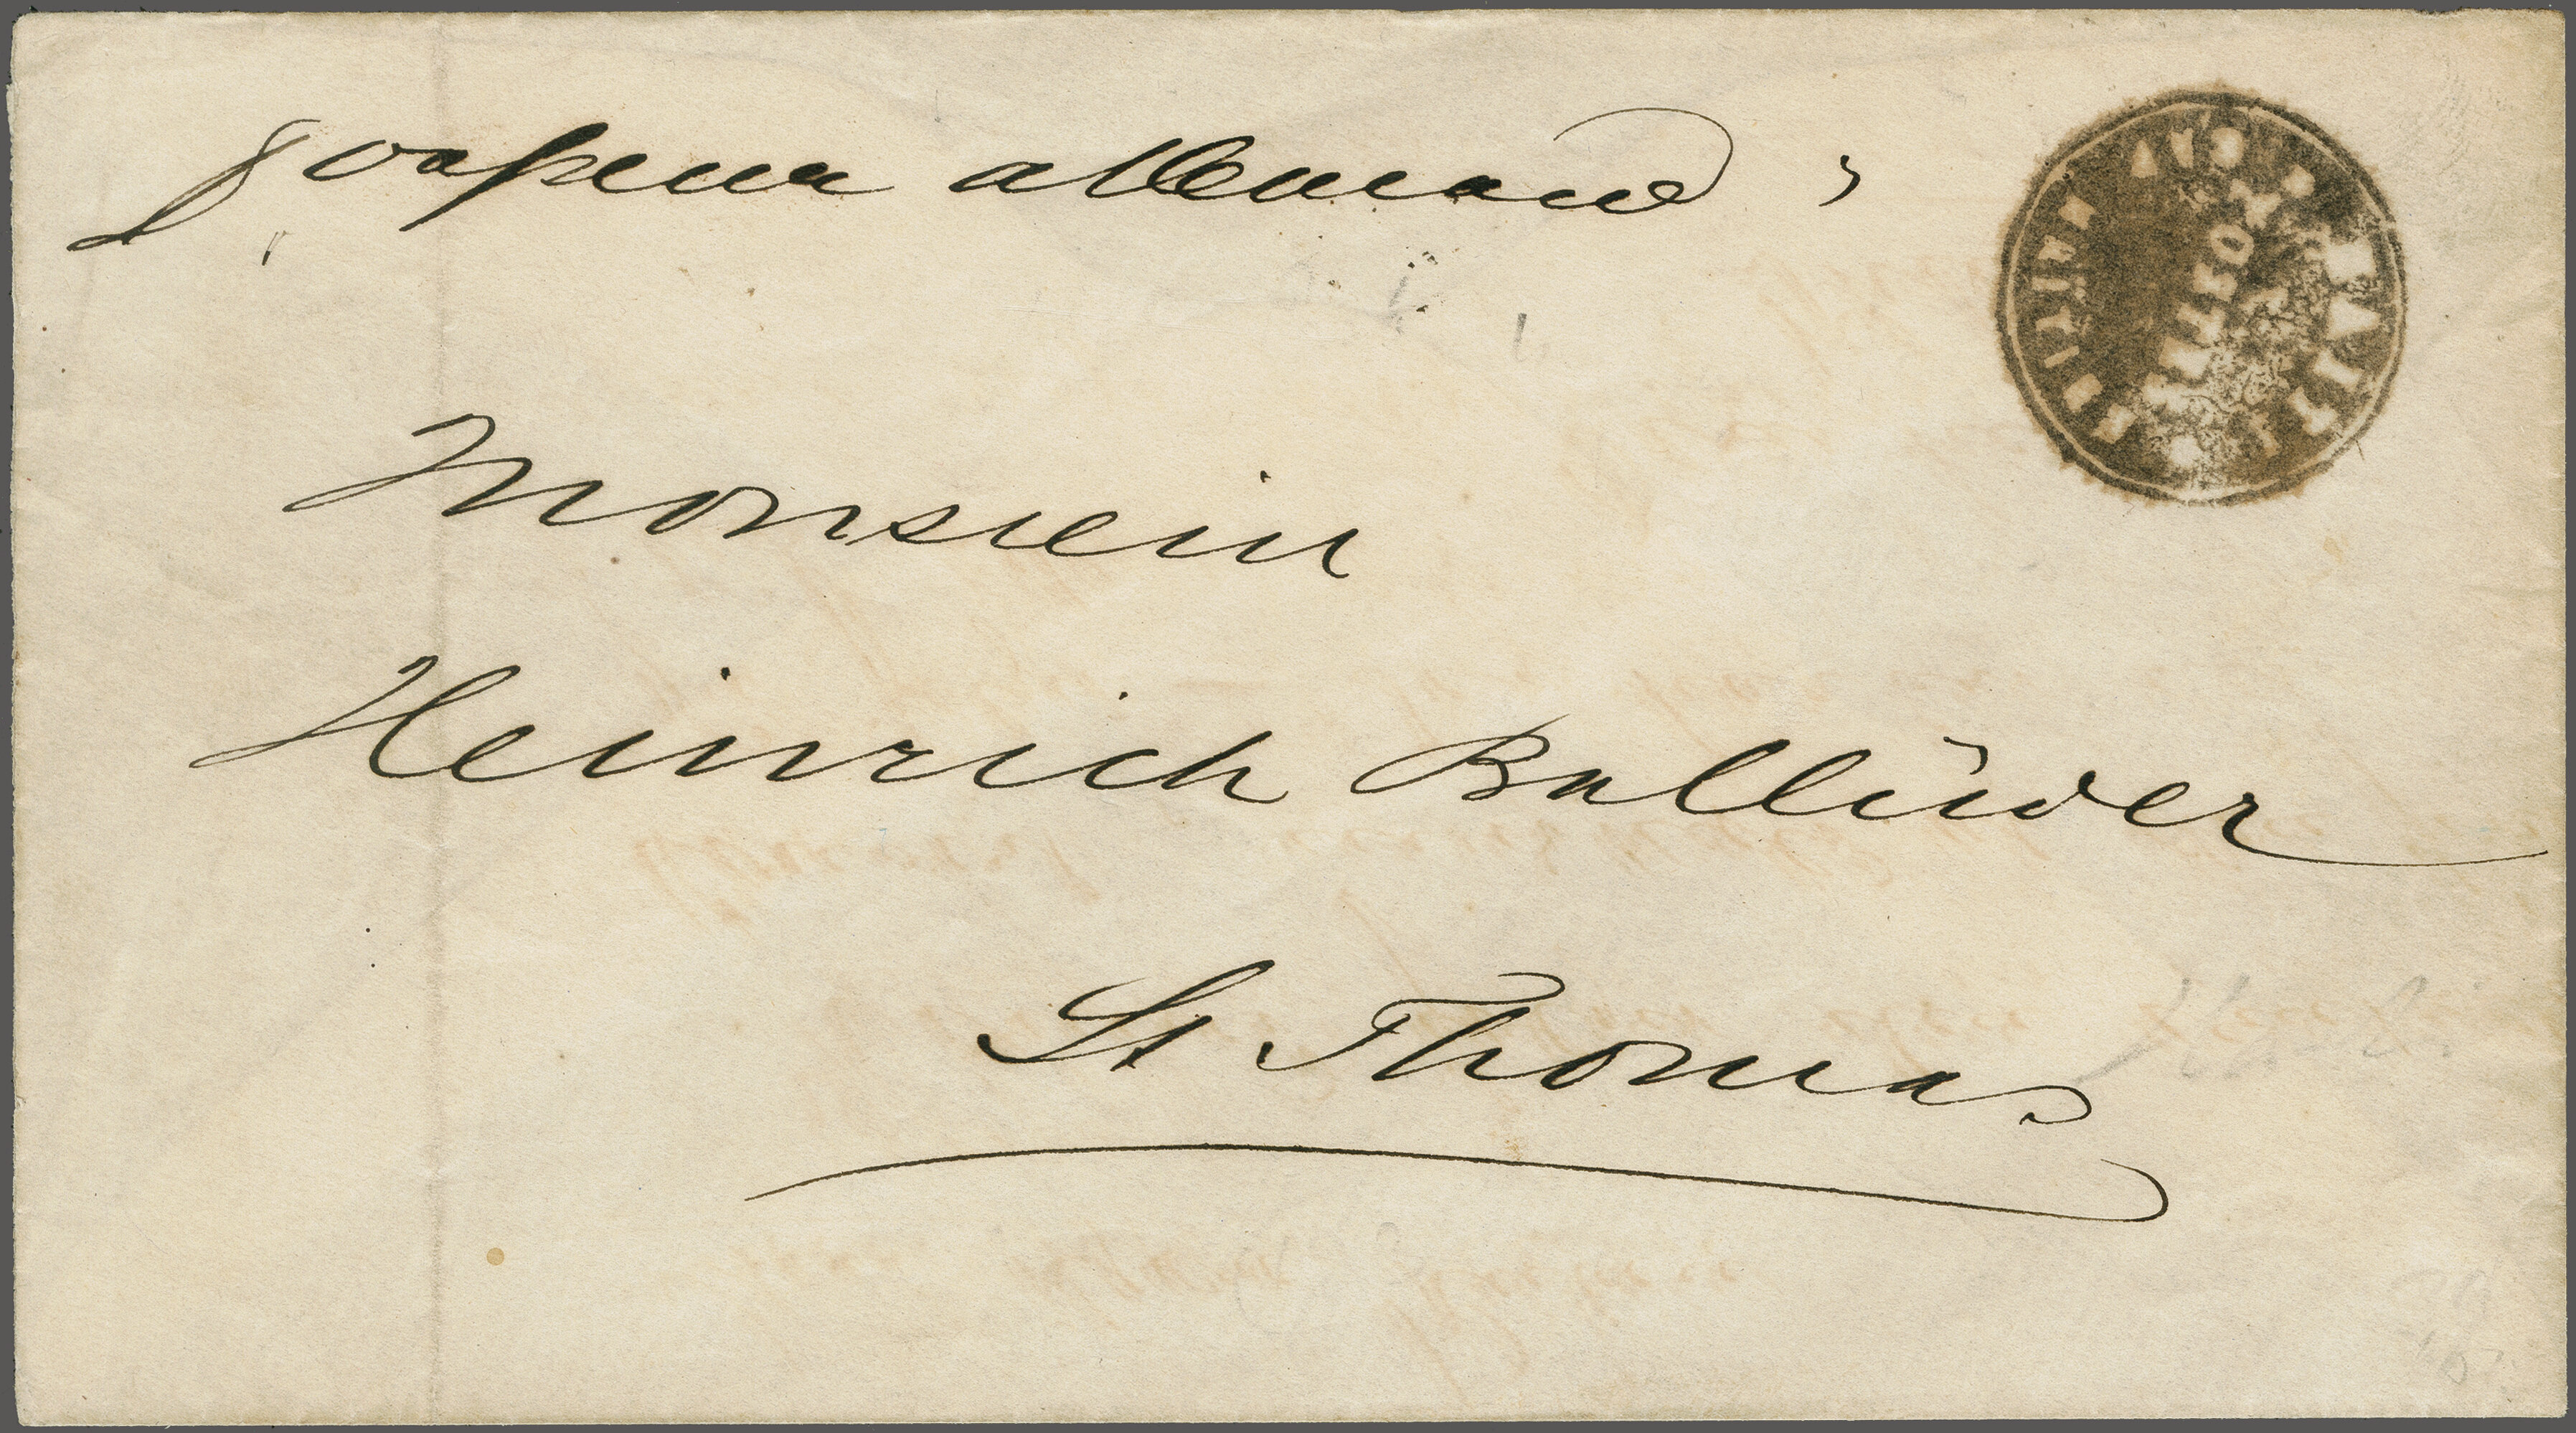 p vapeur allemand
Monsieur
Heinrich Ballüwer
St Thomas
HAITIEN